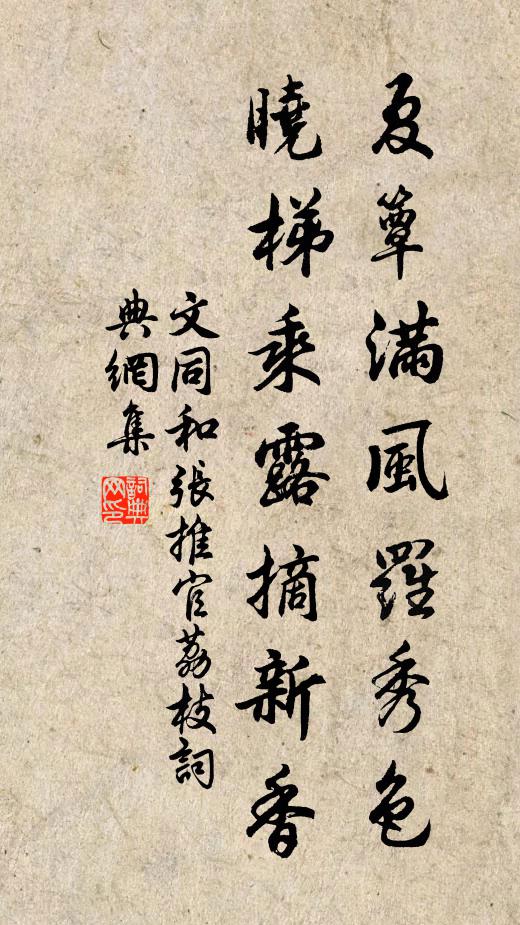 夏簟滿風羅秀色
曉梯乘露摘新香
文同和張推官荔枝詞
典網集
詞典网印